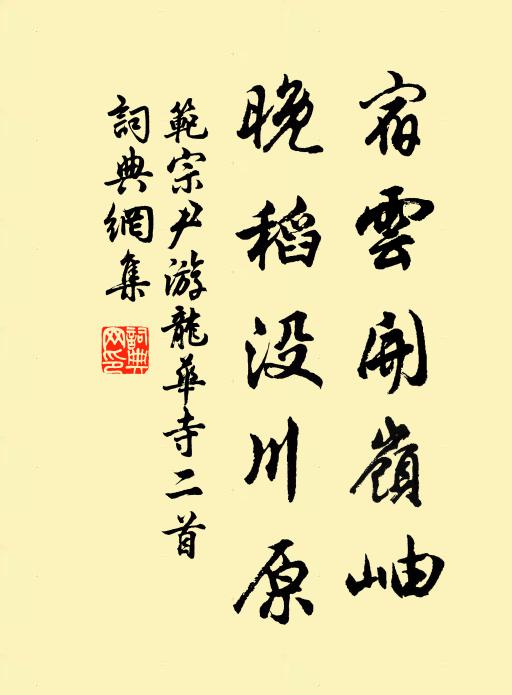 宿雲開嶺岫
晚稻没川原
範宗尹游龍華寺二首
詞典網集
詞典網印